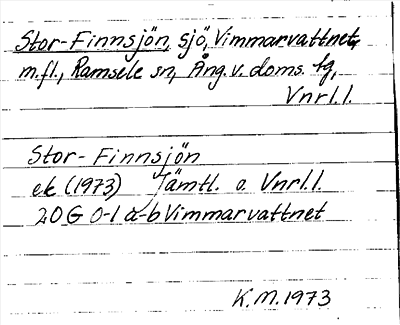 Stor-Finnsjön, sjö, Vimmarvattnet,
m.fl., Ramsele sn, Ång. v. doms. tg,
Vnrl.l.
Stor-Finnsjön
ek (1973) Jämtl. o. Vnrl.l.
20 G 0-1 a-b Vimmarvattnet
K.M. 1973